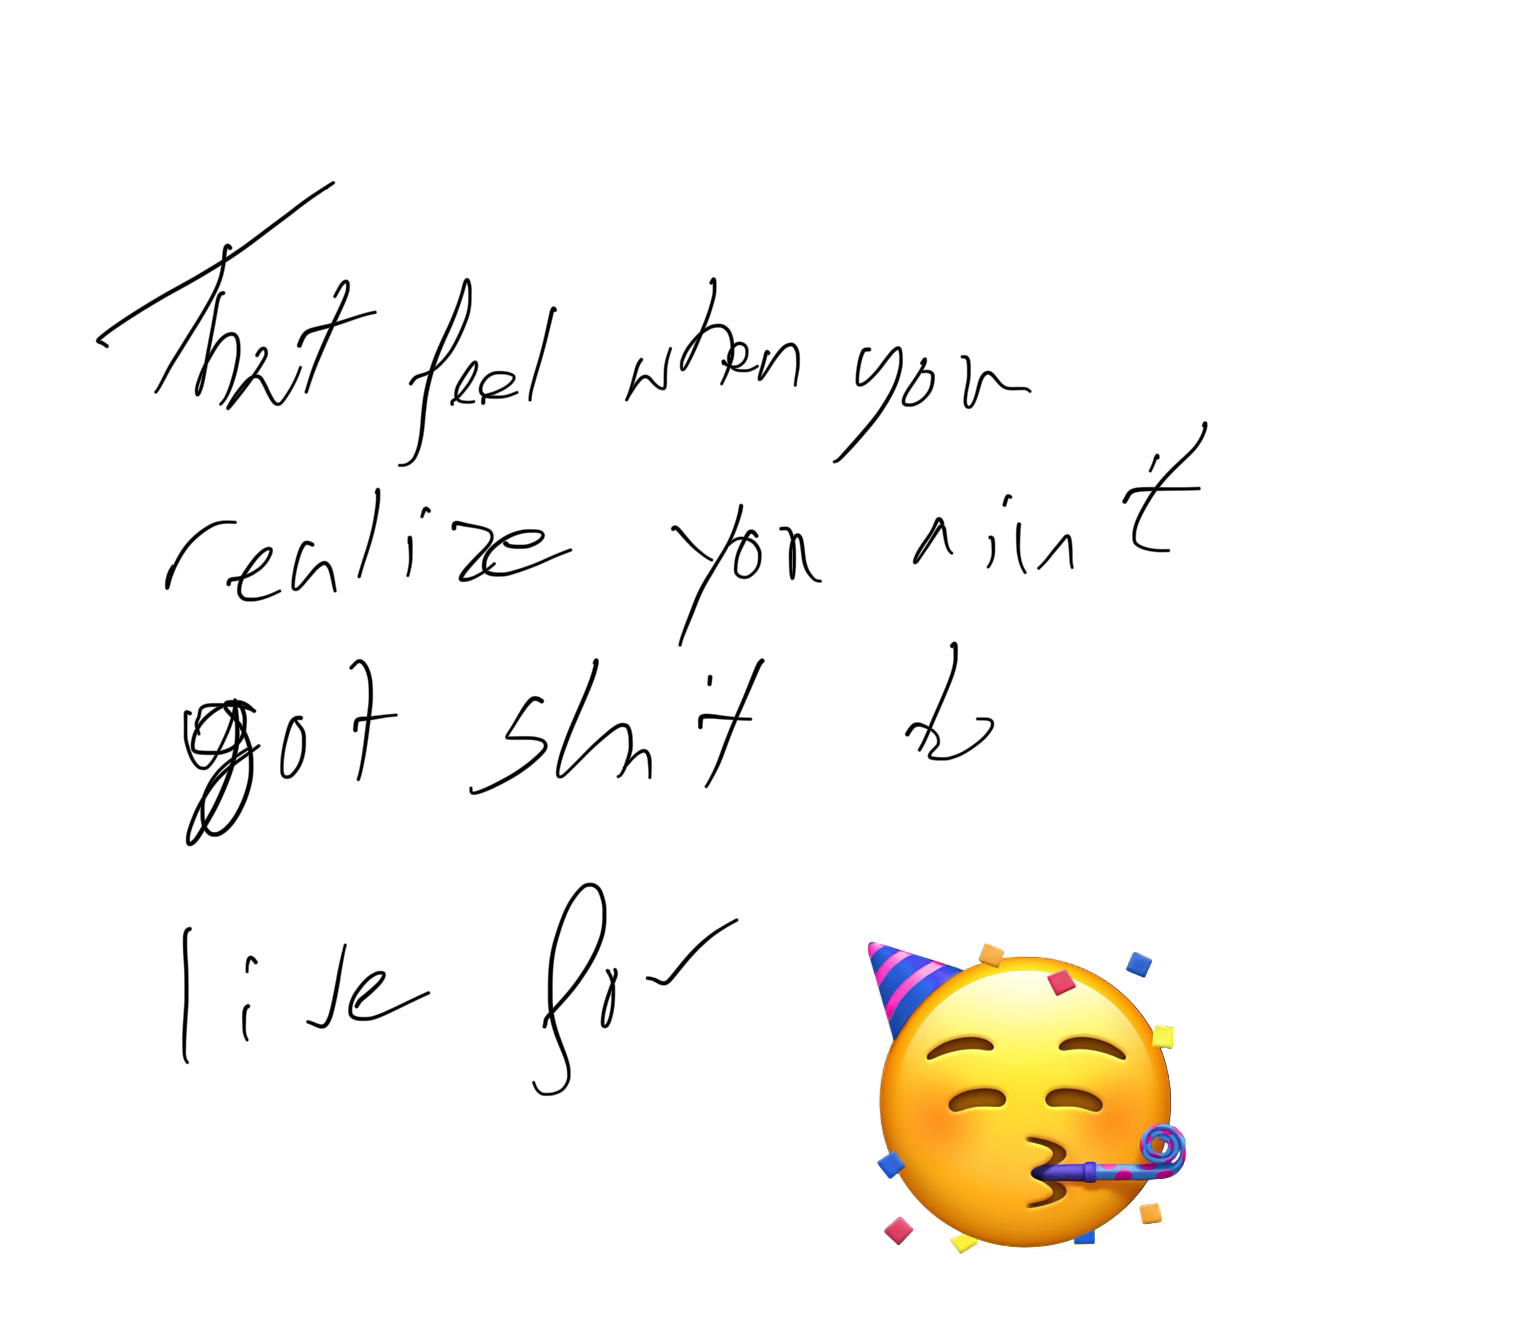 That feel when you
realize you ain't
got shit to
live for